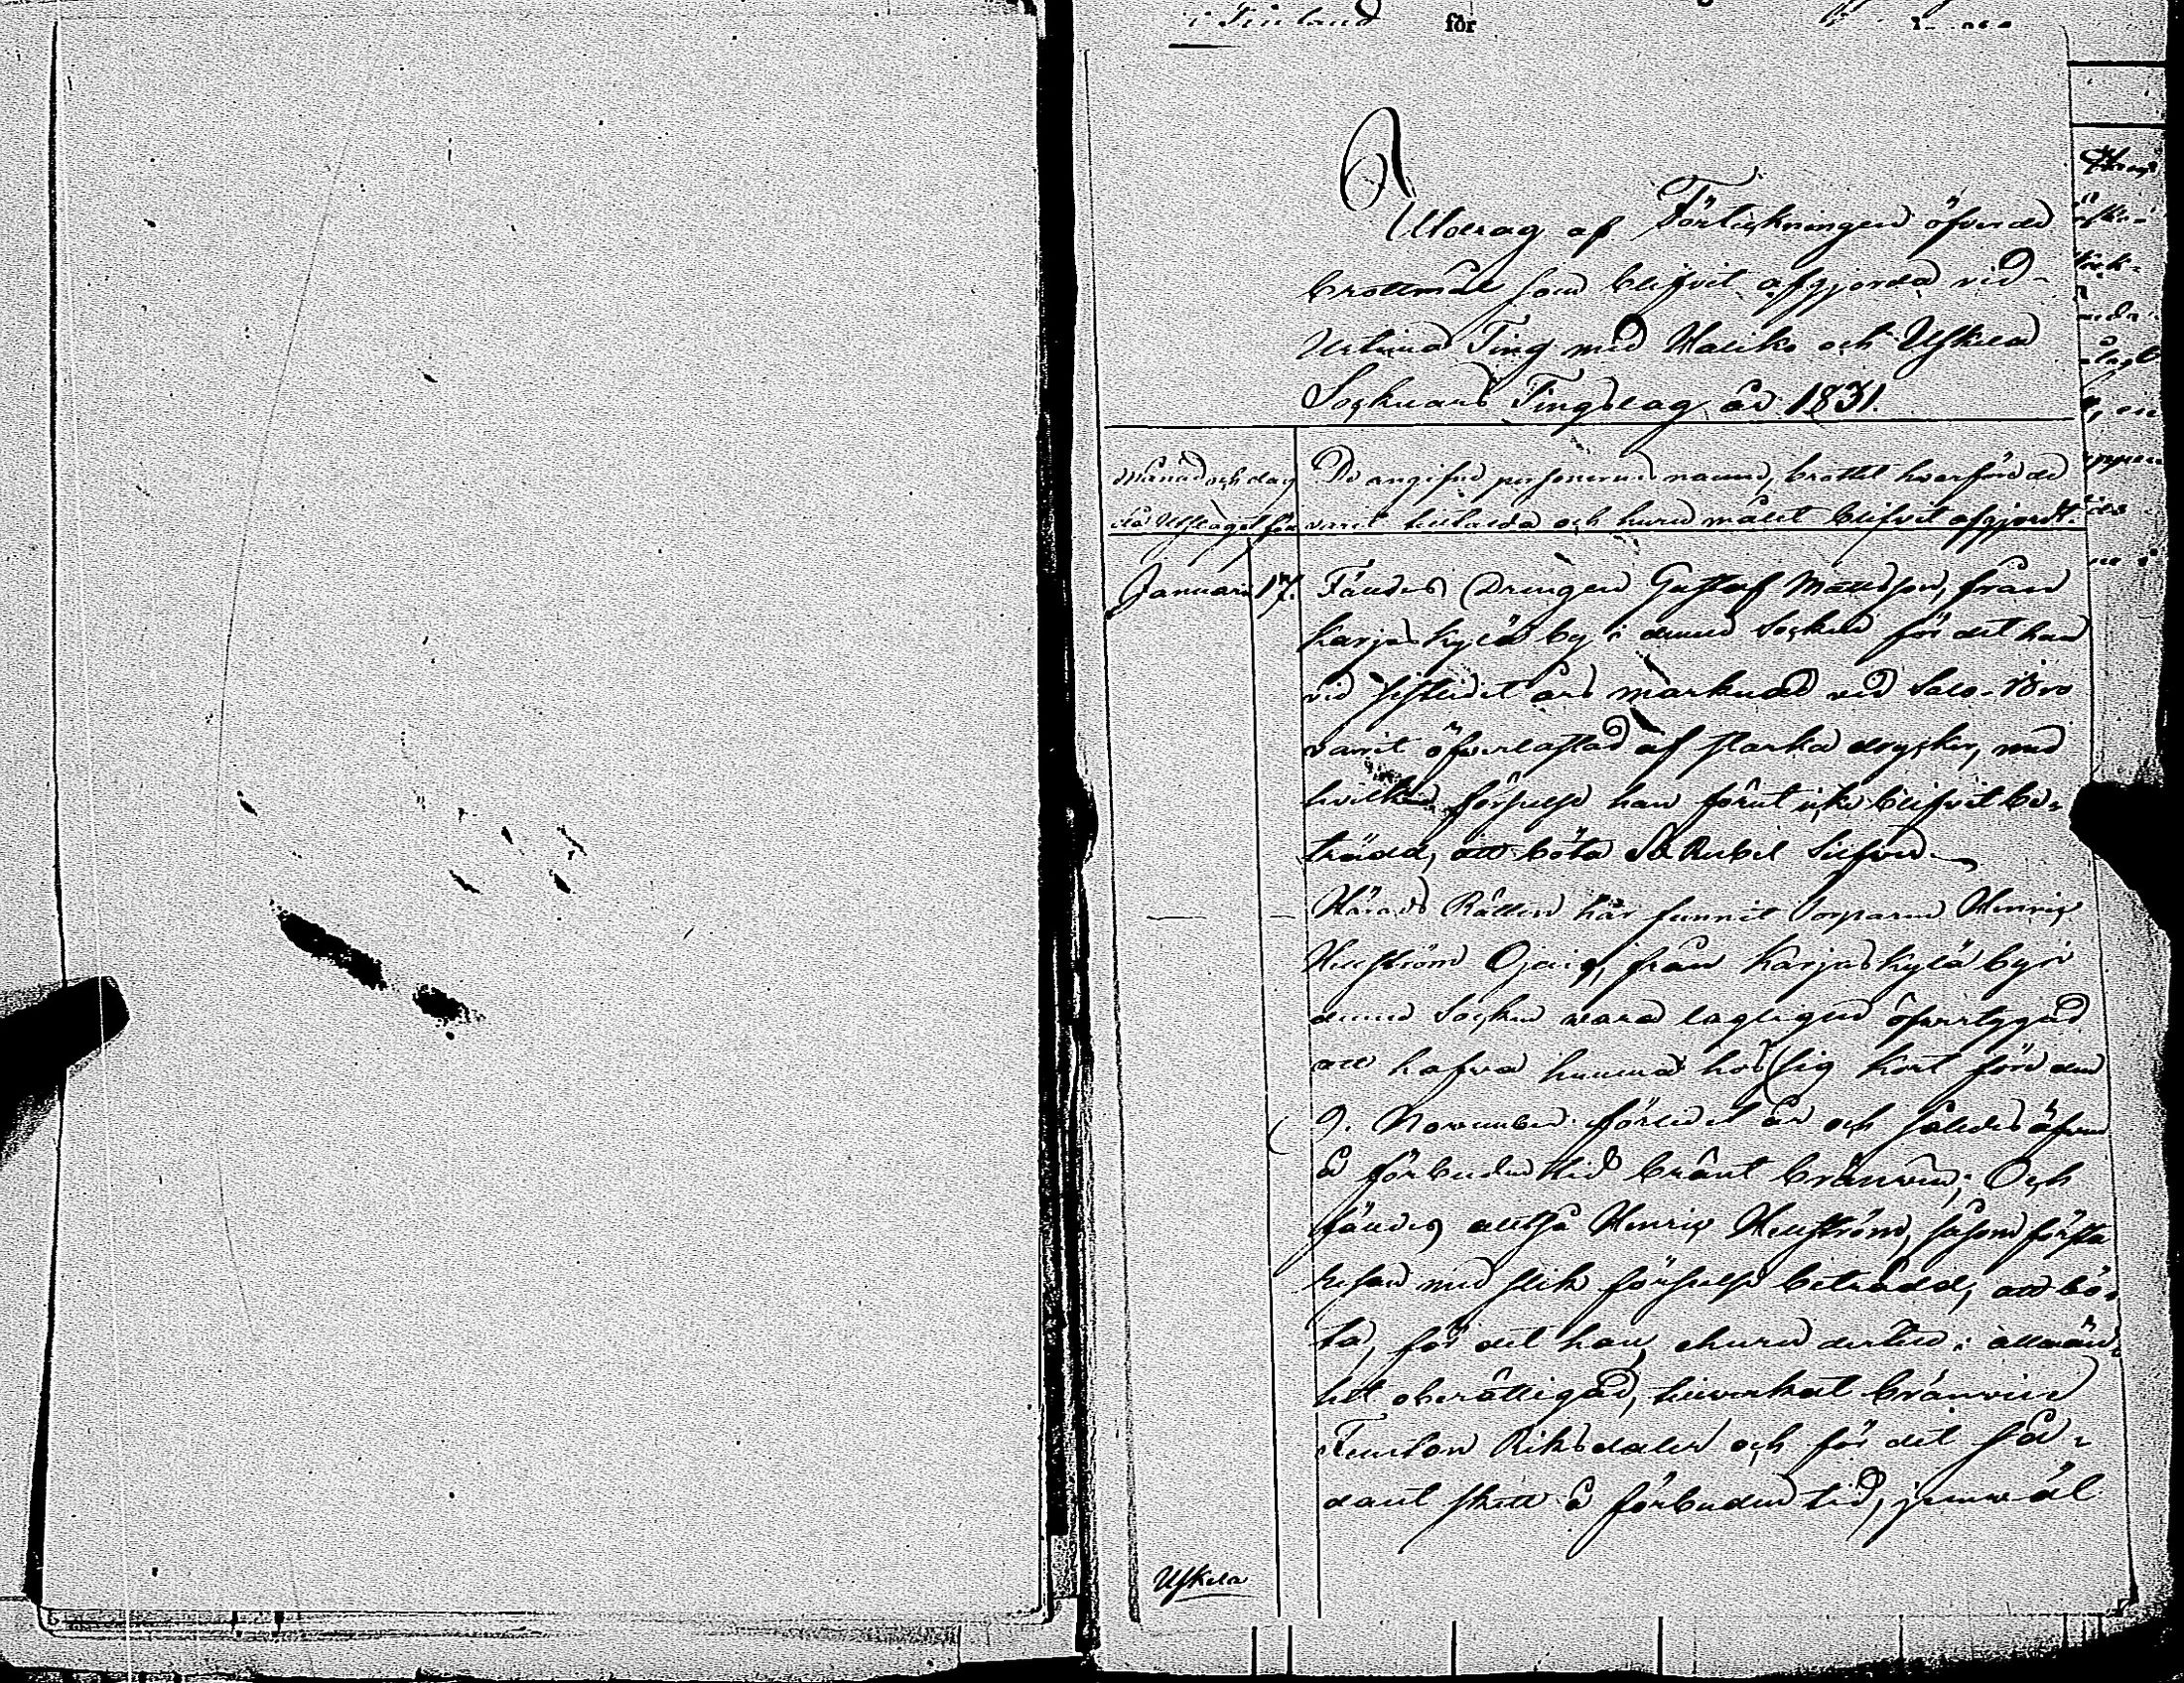 i Finland för
Utdrag af Förteckningen öfver de
brottmål som blifvit afgjorda vid
Urtima Ting med Haliko och Uskela
Socknars Tingslag år 1831.
Månad och dag De angifne personernes namn, brottet hvarföre de
då Utslaget för varit tilltalde och huru målet blifvit afgjordt.
Januarii 17. Fälldes Drengen Gustaf Mattsson, från
Karjaskylä by i denna Socken för det han
vid sistledit års marknad vid Salo-
varit öfverlastad af starka drycker, med
hvilken förseelse han förut icke blifvit be-
trädd, att böta Rubel Silfver.
— — Härads Rätten har funnit Torparen Henric
Hellström Ojais, från Karjaskylä by i
denna Socken vara lagligen öfvertygad
att hafva hemma hos sig kort före den
9. November förledit år och således äfven
å förbuden tid bränt bränvin; Och
fälldes alltså Henric Hellström, såsom första
resan med slik förseelse beträdd, att bö-
ta, för det han, ehuru dertill i allmän-
het oberättigad, tillverkat bränvin
Femton Riksdaler och för det så-
dant skett å förbuden tid, jemväl
Uskela